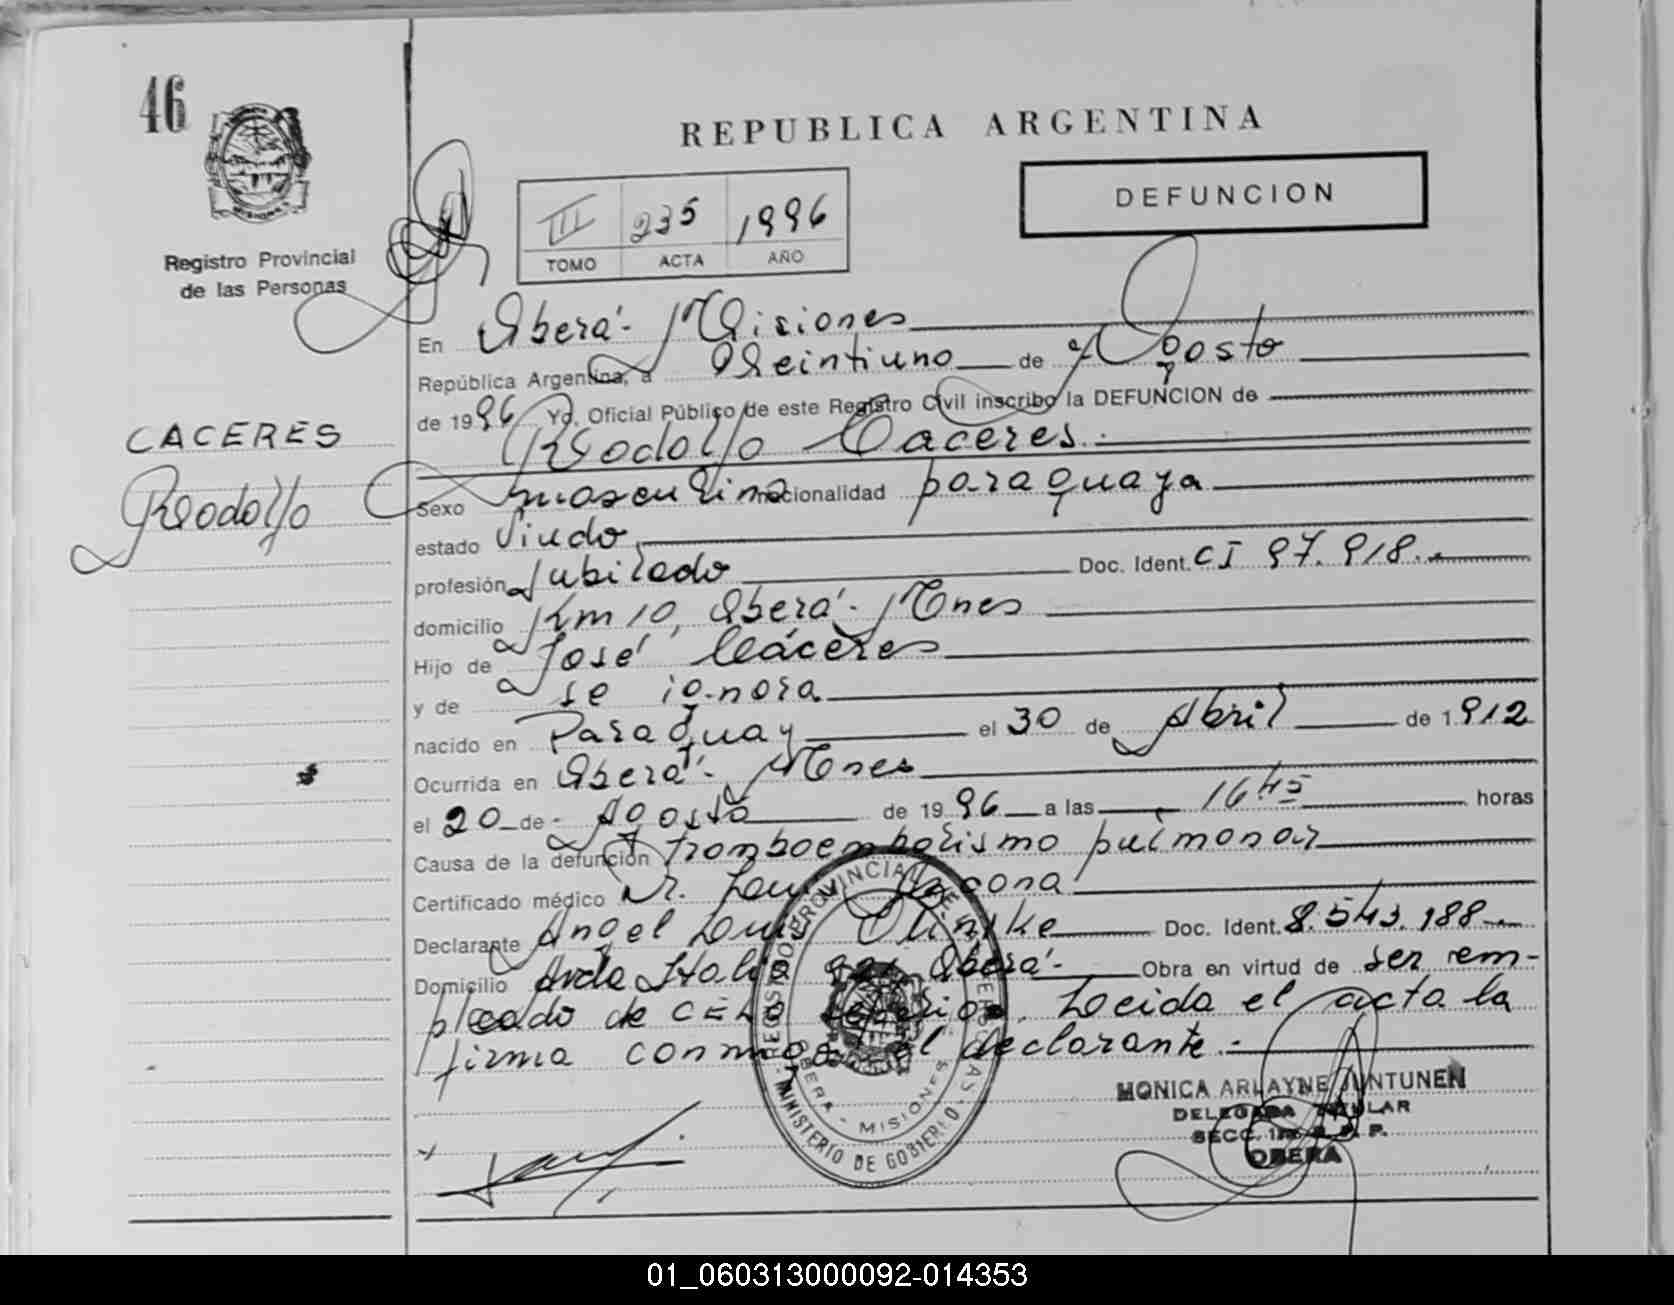 46
REPUBLICA ARGENTINA
DEFUNCION
III 235 1996
TOMO ACTA AÑO
MISIONES
Registro Provincial
de las Personas
En Oberá - Misiones
República Argentina, a Veintiuno de Agosto
de 1996 Yo, Oficial Público de este Registro Civil inscribo la DEFUNCION de
CACERES
Rodolfo Caceres.
Rodolfo
Sexo masculino nacionalidad paraguaya
estado Viudo
profesión Jubilado Doc. Ident. CI 97.918.
domicilio Km 10, Oberá - Mnes
Hijo de José Cáceres
y de se ignora
nacido en Paraguay el 30 de Abril de 1912
Ocurrida en Oberá - Mnes
el 20 de Agosto de 1996 a las 16 45 horas
Causa de la defunción tromboembolismo pulmonar
Certificado médico Dr. Luis
Declarante Angel Luis Doc. Ident. 8.543.188
Domicilio Avda Italia Oberá - Obra en virtud de ser em-
pleado de CELO Sepelios. Leida el acta la
firma conmigo el declarante.-
REGISTRO PROVINCIAL DE LAS PERSONAS
OBERA - MISIONES
MINISTERIO DE GOBIERNO
MONICA ARLAYNE JUNTUNEN
DELEGADA TITULAR
SECC. 1ra R. P. P.
OBERA
01_060313000092-014353